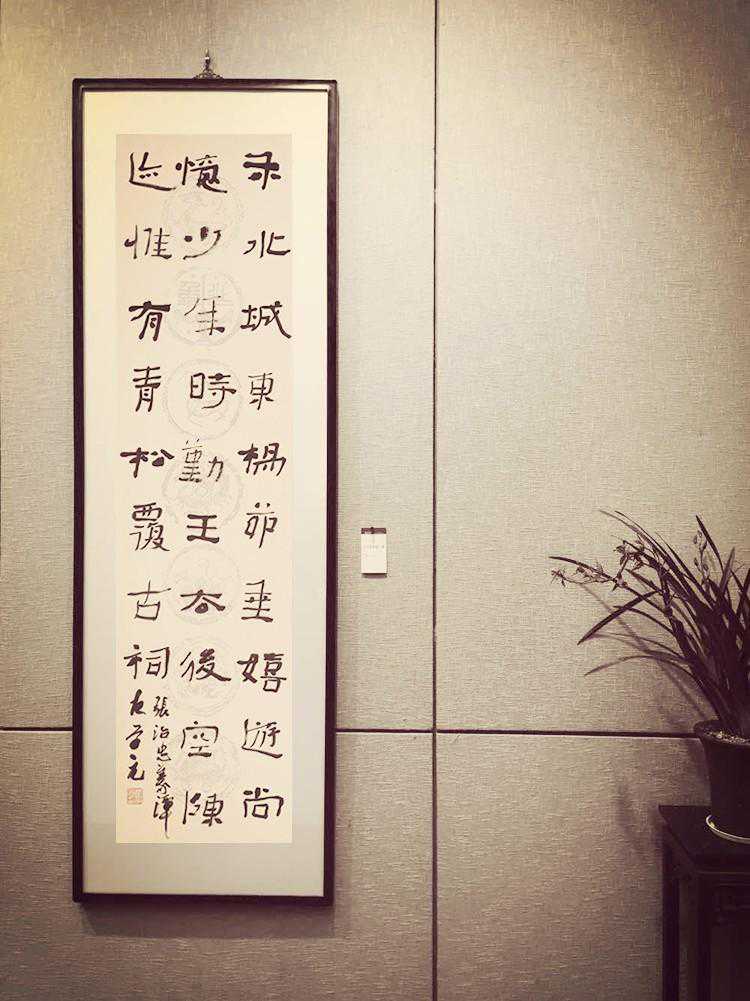 禾水城東楊茆垂嬉遊尚
憶少年時勤王去後空陳
迹惟有青松覆古祠
張治忠義潭
左学元